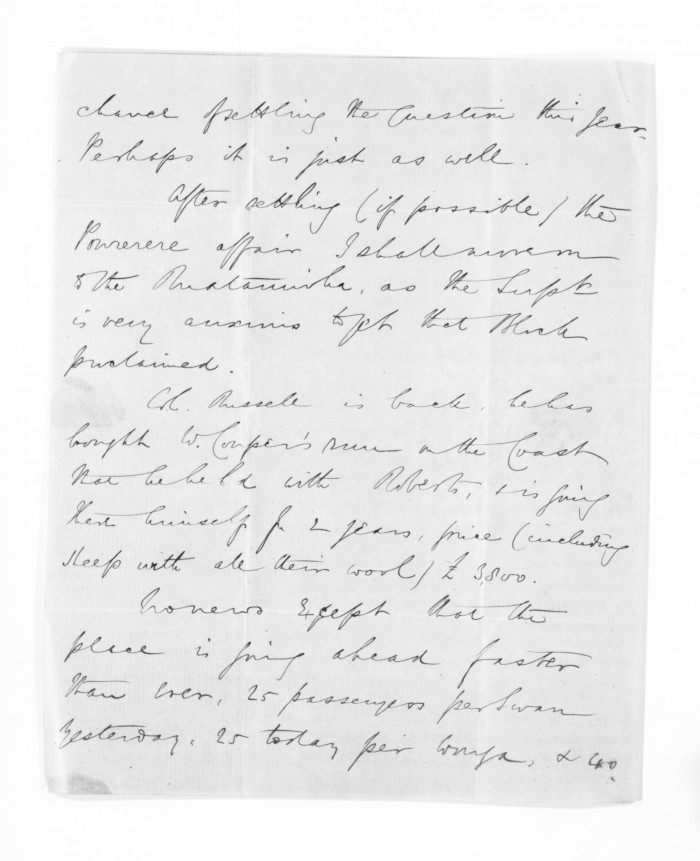 chance of settling the Question this year.
Perhaps it is just as well.
After settling (if possible) the
Powerere affair I shall move on
to the Ruataniwha, as the Supt
is very anxious to get that Block
proclaimed.
Col. Russell is back, he has
bought W. Couper's run on the Coast
that he held with Roberts, & is going
there himself for 2 years, price (including
sheep with all their wool) £3,800.
No news Except that the
place is going ahead faster
than ever, 25 passengers per Swan
yesterday, 25 today per Wonga, & 40